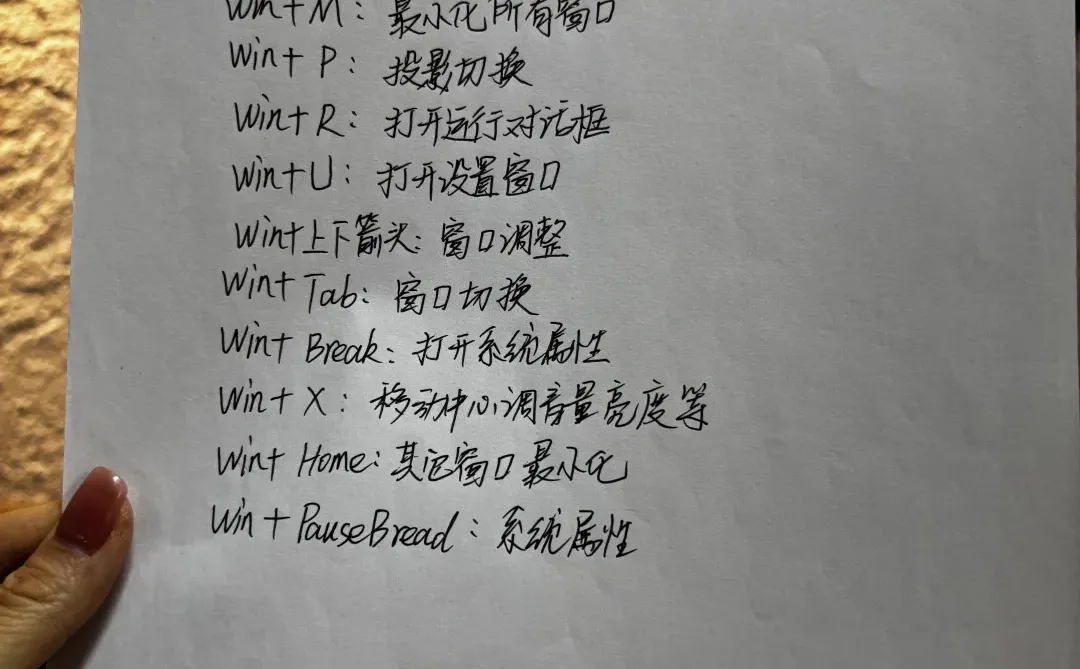 Win+M：最小化所有窗口
Win+ P：投影切换
Win+ R：打开运行对话框
Win+U：打开设置窗口
Win+上下箭头：窗口调整
Win+ Tab：窗口切换
Win+ Break：打开系统属性
Win+ X：移动中心，调音量亮度等
Win+ Home：其它窗口最小化
Win+PauseBread：系统属性